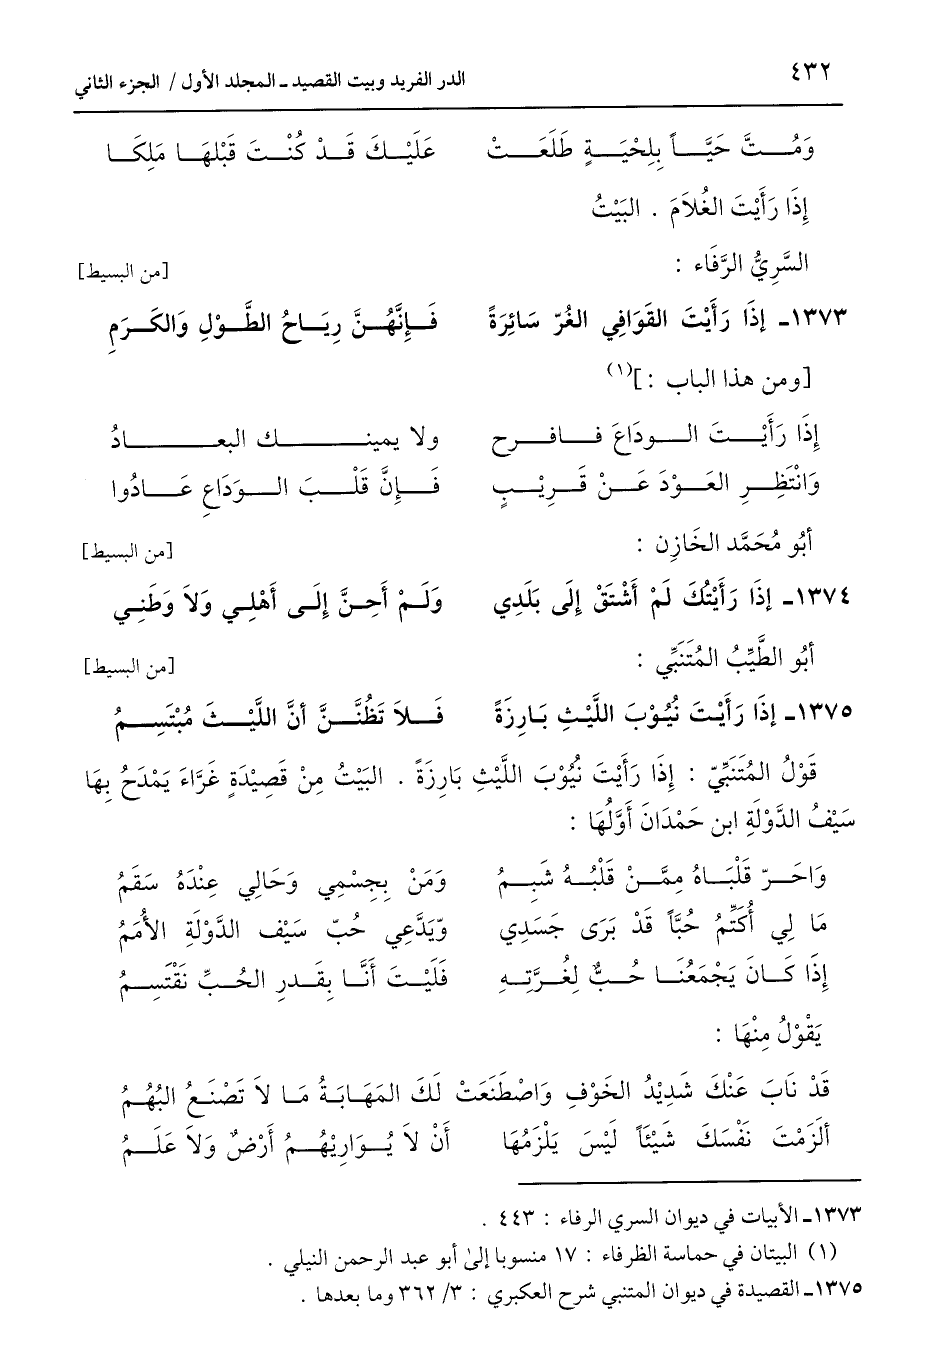 ٤٣٢ الدر الفريد وبيت القصيد ـ المجلد الأول / الجزء الثاني
وَمُتَّ حَيَّاً بِلِحْيَةٍ طَلَعَتْ عَلَيْكَ قَدْ كُنْتَ قَبْلَهَا مَلِكَا
إِذَا رَأَيْتَ الغُلاَمَ . البَيْتُ
السَّرِيُّ الرَّفَاء : [من البسيط]
١٣٧٣ـ إِذَا رَأَيْتَ القَوَافِي الغُرّ سَائِرَةً فَإِنَّهُنَّ رِيَاحُ الطَّوْلِ وَالكَرَمِ
[ومن هذا الباب : ](١)
إِذَا رَأَيْتَ الودَاعَ فافرح ولا يمينك البعادُ
وَانْتَظِرِ العَوْدَ عَنْ قَرِيْبٍ فَإِنَّ قَلْبَ الوَدَاعِ عَادُوا
أَبُو مُحَمَّد الخَازِن : [من البسيط]
١٣٧٤ـ إِذَا رَأَيْتُكَ لَمْ أَشْتَقْ إِلَى بَلَدِي وَلَمْ أَحِنَّ إِلَى أَهْلِي وَلاَ وَطَنِي
أَبُو الطَّيِّبُ المُتَنَبِّي : [من البسيط]
١٣٧٥ـ إِذَا رَأَيْتَ نُيُوْبَ اللَّيْثِ بَارِزَةً فَلاَ تَظُنَّنَّ أَنَّ اللَّيْثَ مُبْتَسِمُ
قَوْلُ المُتَنَبِّيّ : إِذَا رَأَيْتَ نُيُوْبَ اللَّيْثِ بَارِزَةً . البَيْتُ مِنْ قَصِيْدَةٍ غَرَّاءَ يَمْدَحُ بِهَا
سَيْفُ الدَّوْلَةِ ابن حَمْدَانَ أَوَّلُهَا :
وَاحَرّ قَلْبَاهُ مِمَّنْ قَلْبُهُ شَبِمُ وَمَنْ بِجِسْمِي وَحَالِي عِنْدَهُ سَقَمُ
مَا لِي أُكَتِّمُ حُبَّاً قَدْ بَرَى جَسَدِي وَيَدَّعِي حُبّ سَيْف الدَّوْلَةِ الأُمَمُ
إِذَا كَانَ يَجْمَعُنَا حُبٌّ لِغُرَّتِهِ فَلَيْتَ أَنَّا بِقَدرِ الحُبِّ نَقْتَسِمُ
يَقْوْلُ مِنْهَا :
قَدْ نَابَ عَنْكَ شَدِيْدُ الخَوْفِ وَاصْطَنَعَتْ لَكَ المَهَابَةُ مَا لاَ تَصْنَعُ البُهُمُ
أَلزَمْتَ نَفْسَكَ شَيْئَاً لَيْسَ يَلْزَمُهَا أَنْ لاَ يُوَارِيْهُمُ أَرْضٌ وَلاَ عَلَمُ
١٣٧٣ـ الأبيات في ديوان السري الرفاء : ٤٤٣ .
(١) البيتان في حماسة الظرفاء : ١٧ منسوبا إلىٰ أبو عبد الرحمن النيلي .
١٣٧٥ـ القصيدة في ديوان المتنبي شرح العكبري : ٣/ ٣٦٢ وما بعدها .